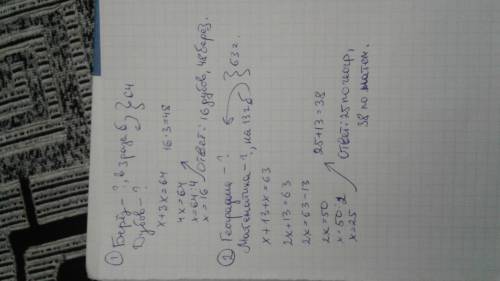 ① Берёз - ?, в 3 раза б
Дубов - ? } 64
x+3x=64
4x=64
x=64:4
x=16
16·3=48
Ответ: 16 дубов, 48 берёз.
② География - ?
Математика - ?, на 13 б } 63 г.
x+13+x=63
2x+13=63
2x=63-13
2x=50
x=50:2
x=25
25+13=38
Ответ: 25 по геогр,
38 по матем.